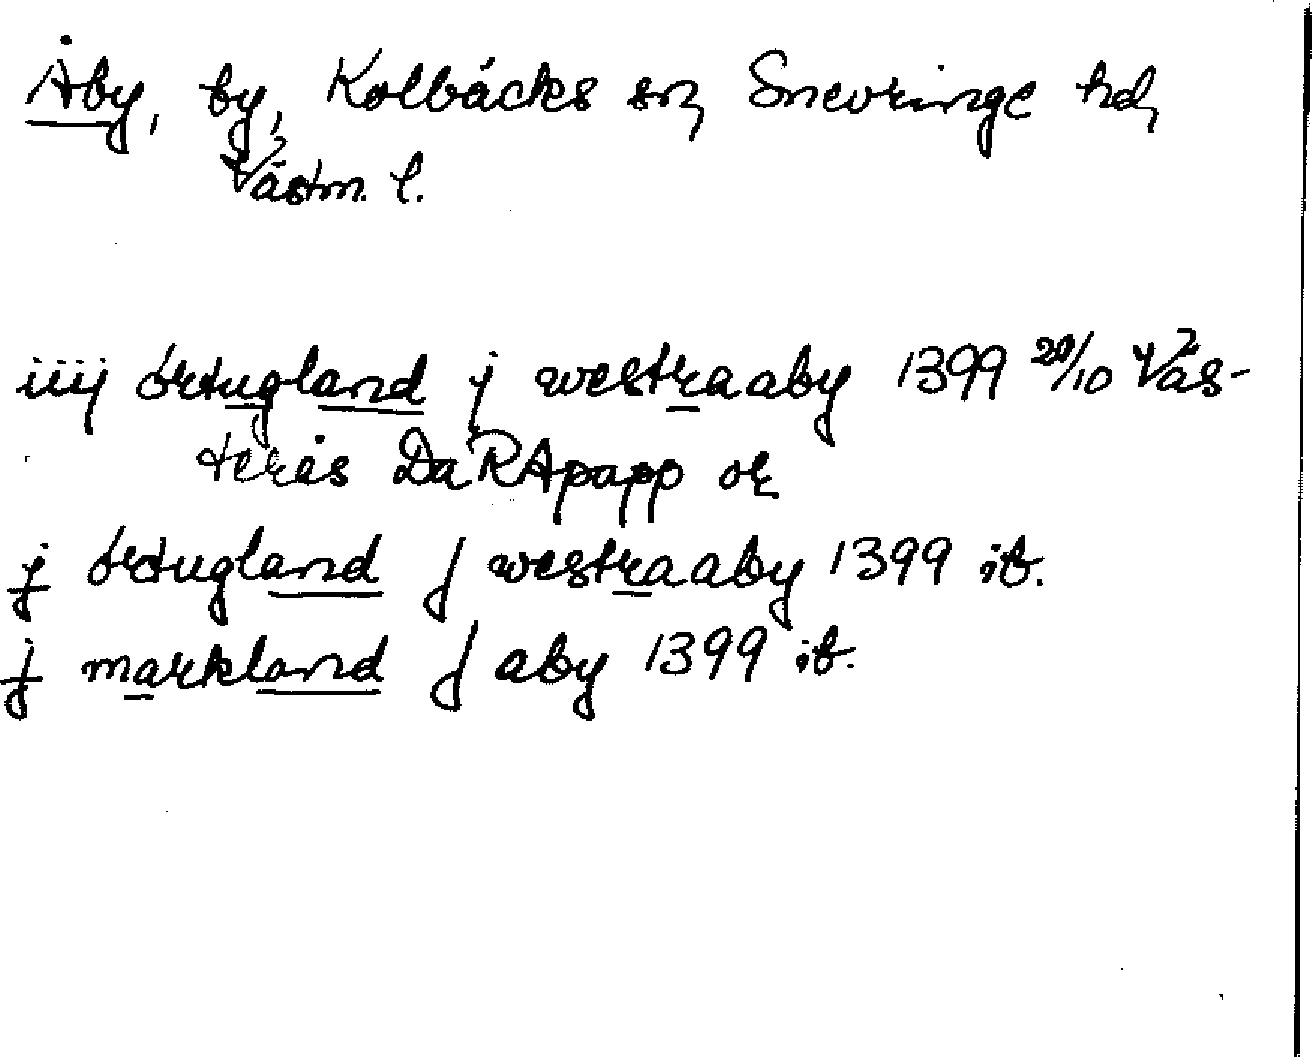 Åby, by, Kolbäcks sn, Snevringe hd,
Västm. l.
iiij örtugland j westraaby 1399 20/10 Väs-
terås DaRApapp or.
j örtugland j westraaby 1399 ib.
j markland j aby 1399 ib.